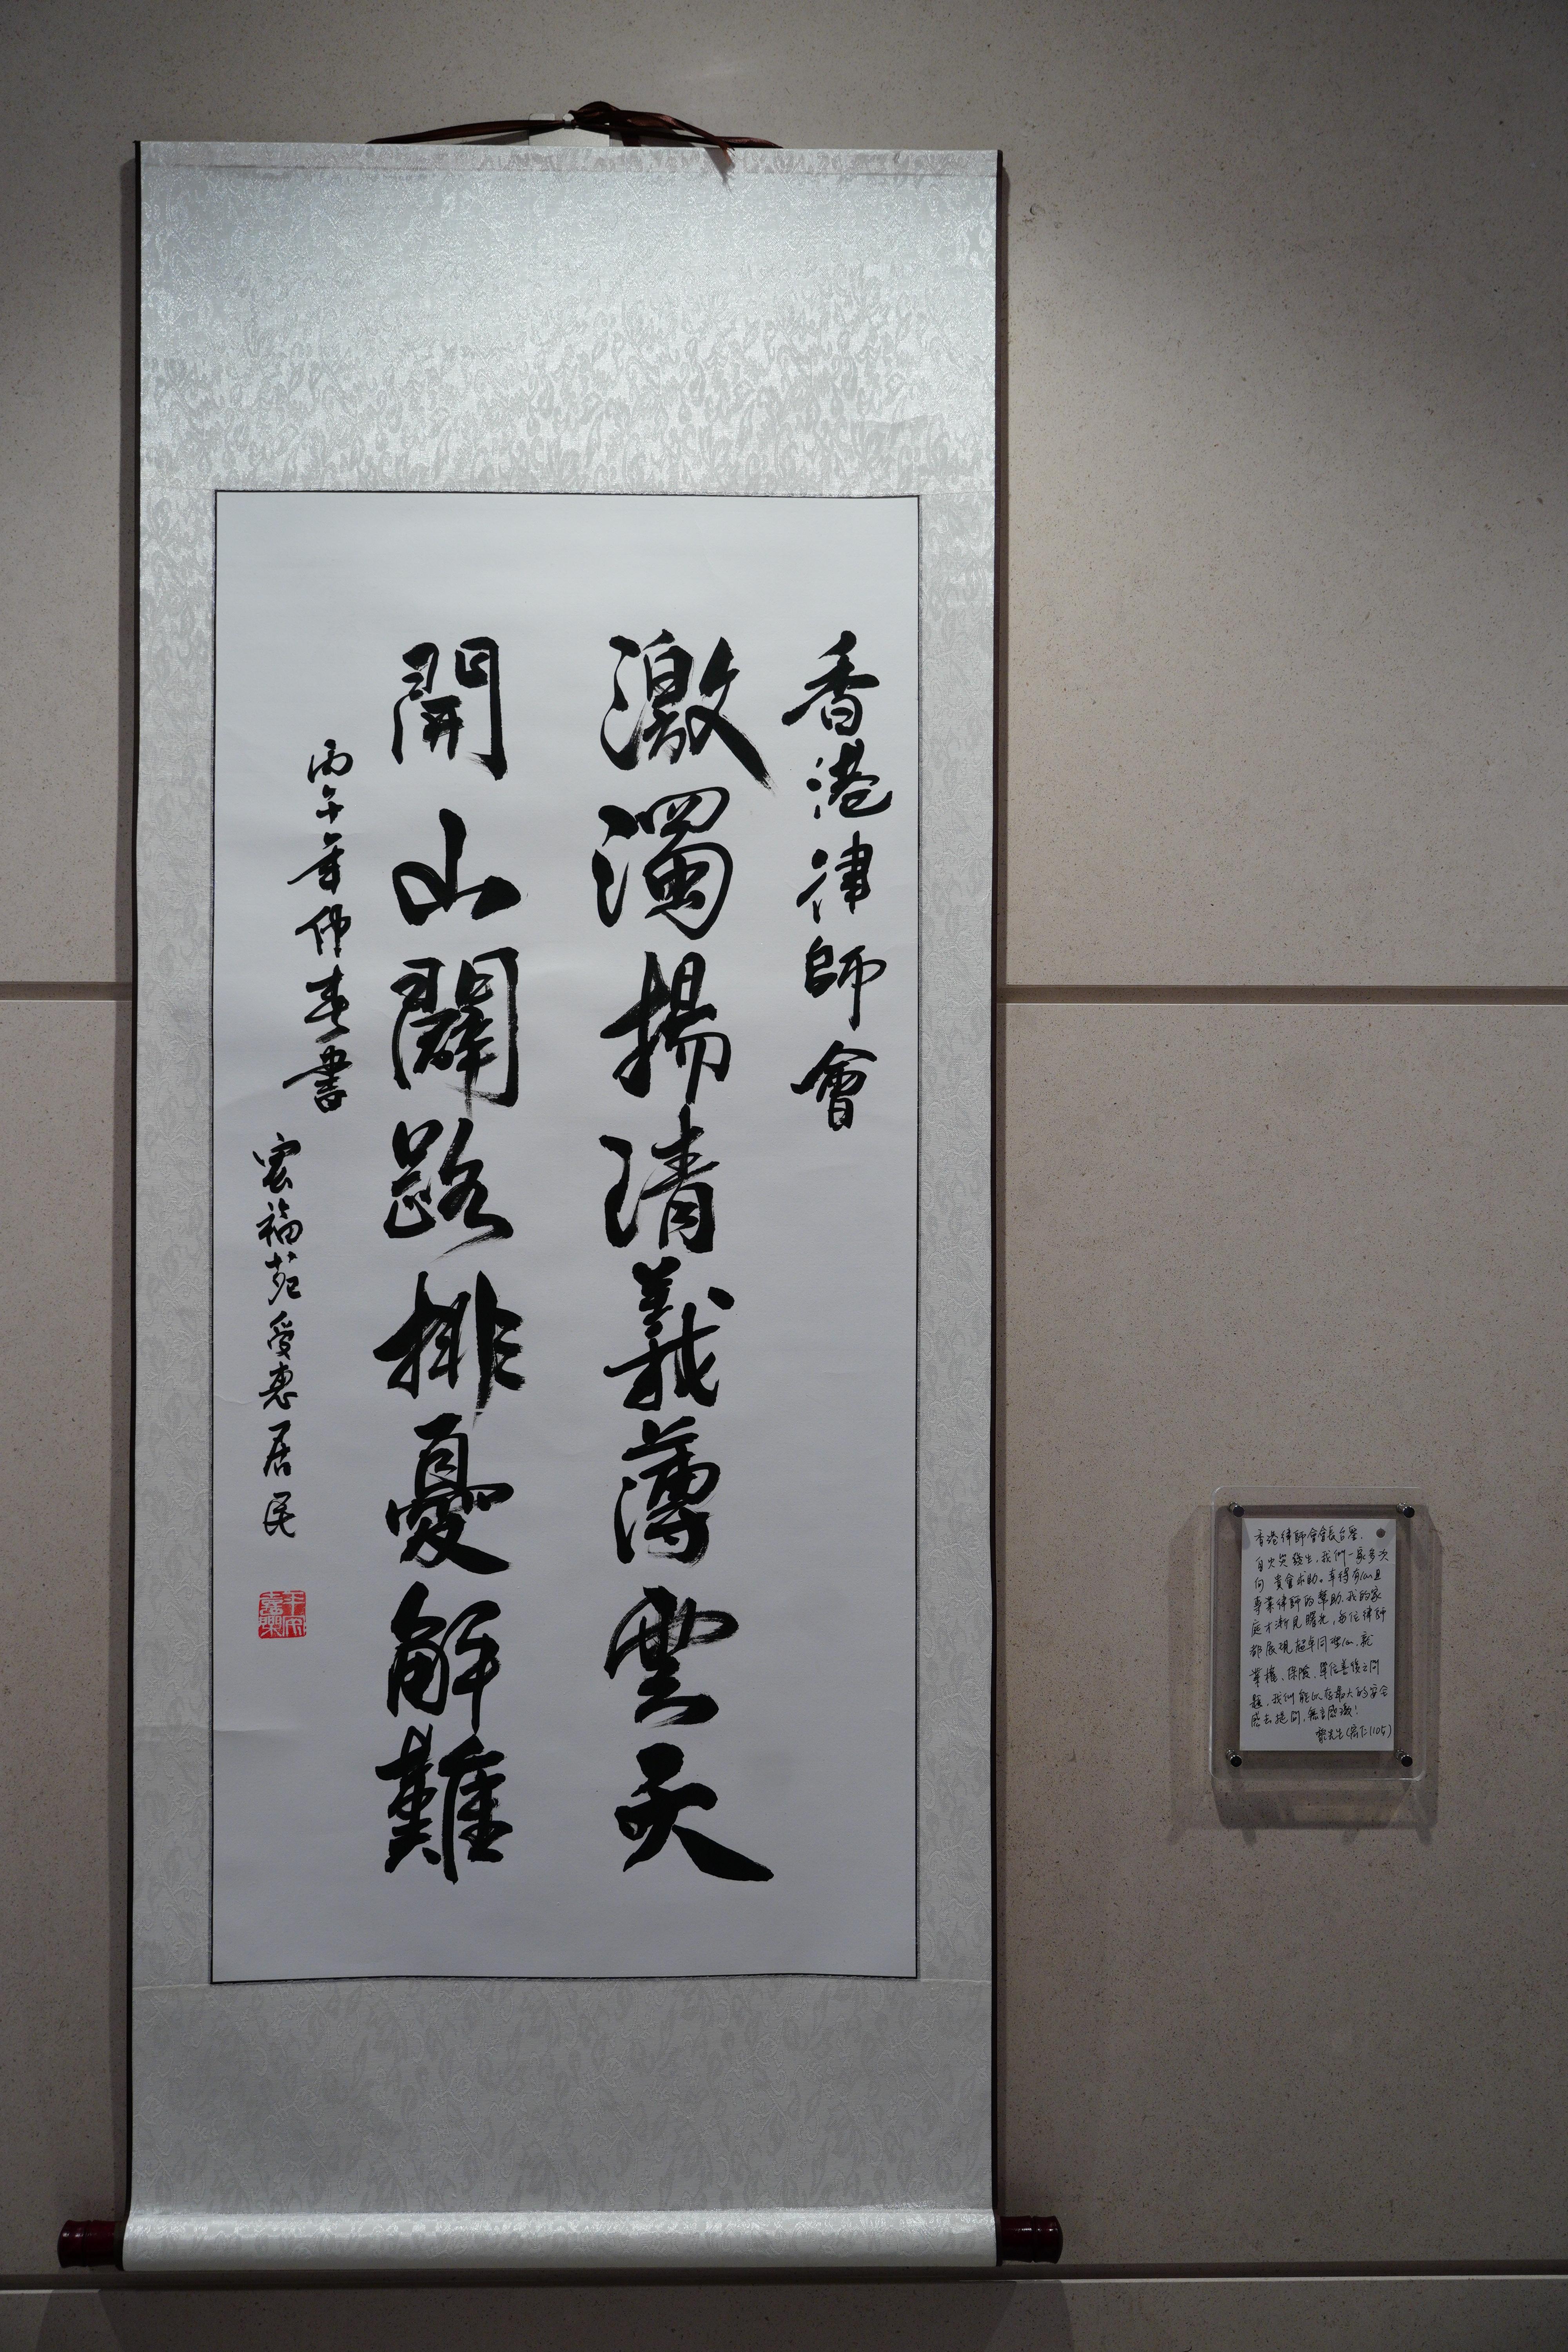 香港律師會
激濁揚清義薄雲天
開山闢路排憂解難
丙午年仲春書
宏福苑受惠居民
香港律師會會長台鑒.
自火災發生，我們一家多次
向 貴會求助。幸得有心且
專業律師的幫助，我的家
庭才漸見曙光，每位律師
都展現超卓同理心，就
業權、保險、單位善後之問
題，我們能以最大的安全
感去提問，無言感激！
先生(宏仁1105)